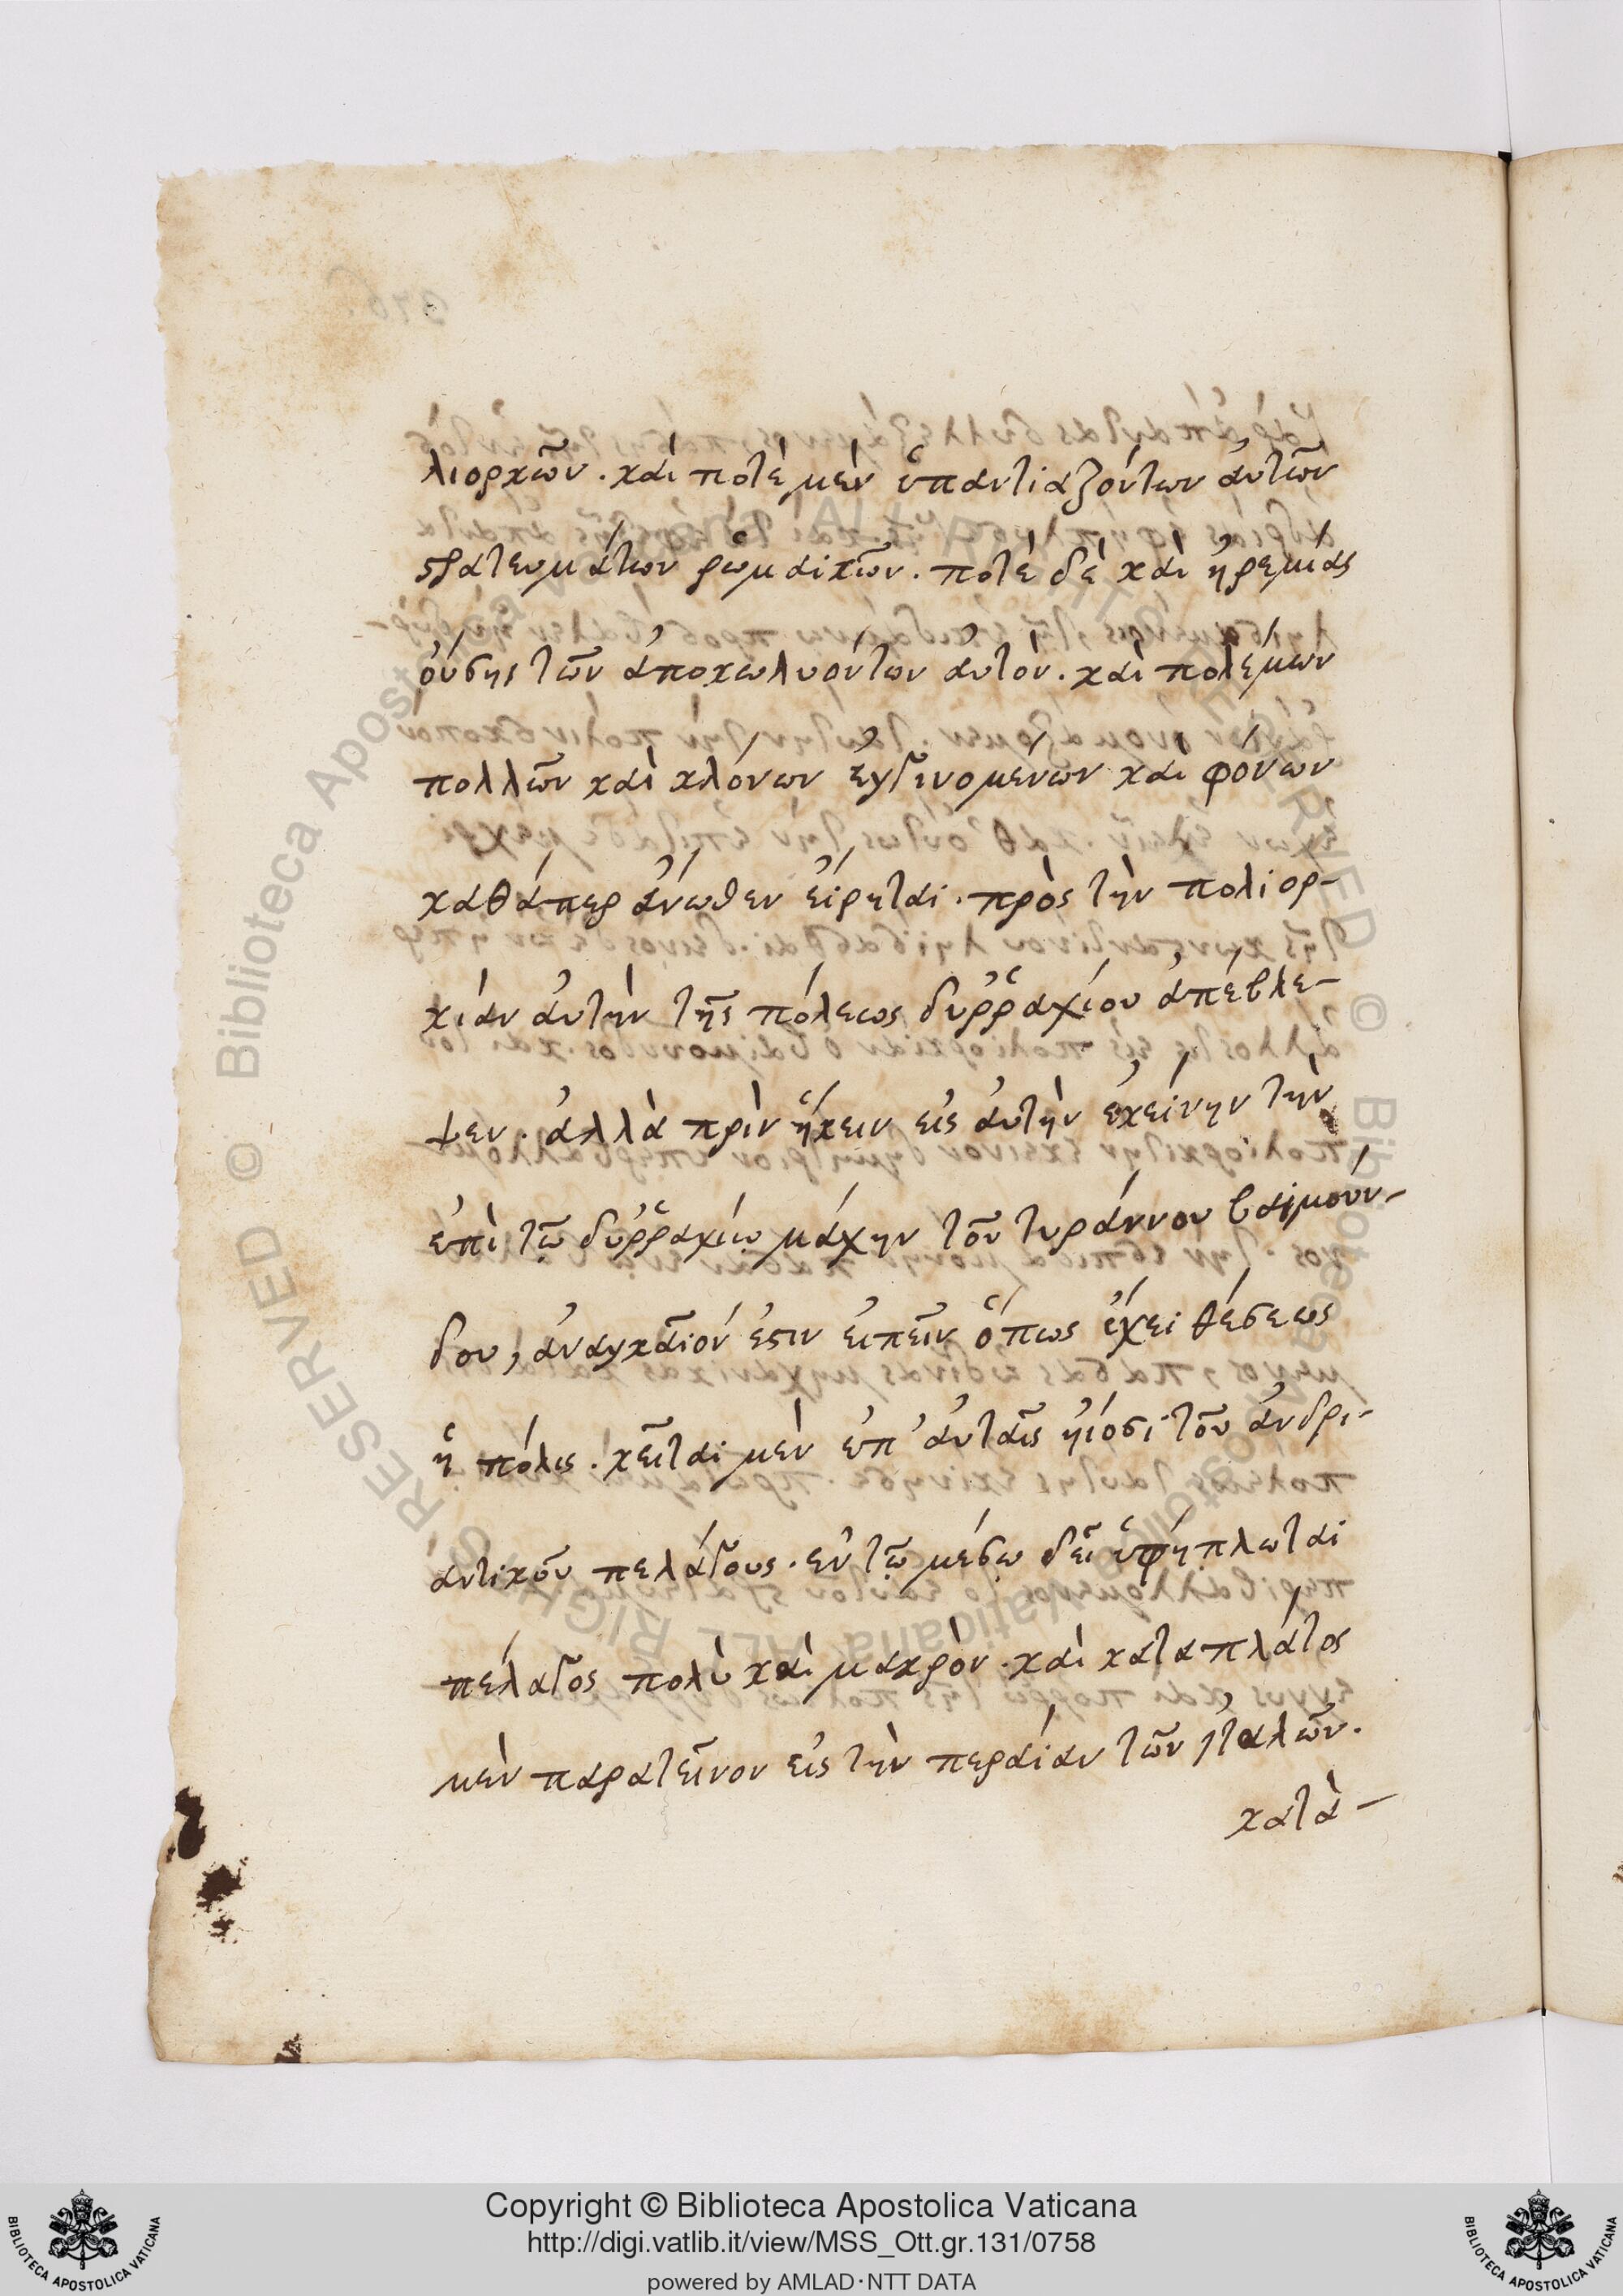 λιορκῶν. καὶ ποτὲ μὲν ὑπαντιαζόντων αὐτῶν
στρατευμάτων ῥωμαϊκῶν. ποτὲ δὲ καὶ ἠρεμίας
οὔσης τῶν ἀποκωλυόντων αὐτόν. καὶ πολέμων
πολλῶν καὶ κλόνων ἐγγινομένων καὶ φόνων
καθάπερ ἄνωθεν εἴρηται. πρὸς τὴν πολιορ-
κίαν αὐτὴν τῆς πόλεως δυῤῥαχίου ἀπέβλε-
ψεν. ἀλλὰ πρὶν ἥκειν εἰς αὐτὴν ἐκείνην τὴν
ἐπὶ τῷ δυῤῥαχίῳ μάχην τοῦ τυράννου βαϊμούν-
δου, ἀναγκαῖόν ἐστιν εἰπεῖν ὅπως ἔχει θέσεως
ἡ πόλις. κεῖται μὲν ἐπ' αὐταῖς ἠϊόσι τοῦ ἀνδρι-
αντικοῦ πελάγους. ἐν τῷ μέσῳ δεῖ ὑφήπλωται
πέλαγος πολὺ καὶ μακρὸν. καὶ κατα πλάτος
μὲν παρατεῖνον εἰς τὴν περαίαν τῶν ἰταλῶν.
κατὰ-
Biblioteca Apostolica Vaticana ALL RIGHTS RESERVED ©
Copyright © Biblioteca Apostolica Vaticana
http://digi.vatlib.it/view/MSS_Ott.gr.131/0758
powered by AMLAD·NTT DATA
BIBLIOTECA APOSTOLICA VATICANA
BIBLIOTECA APOSTOLICA VATICANA